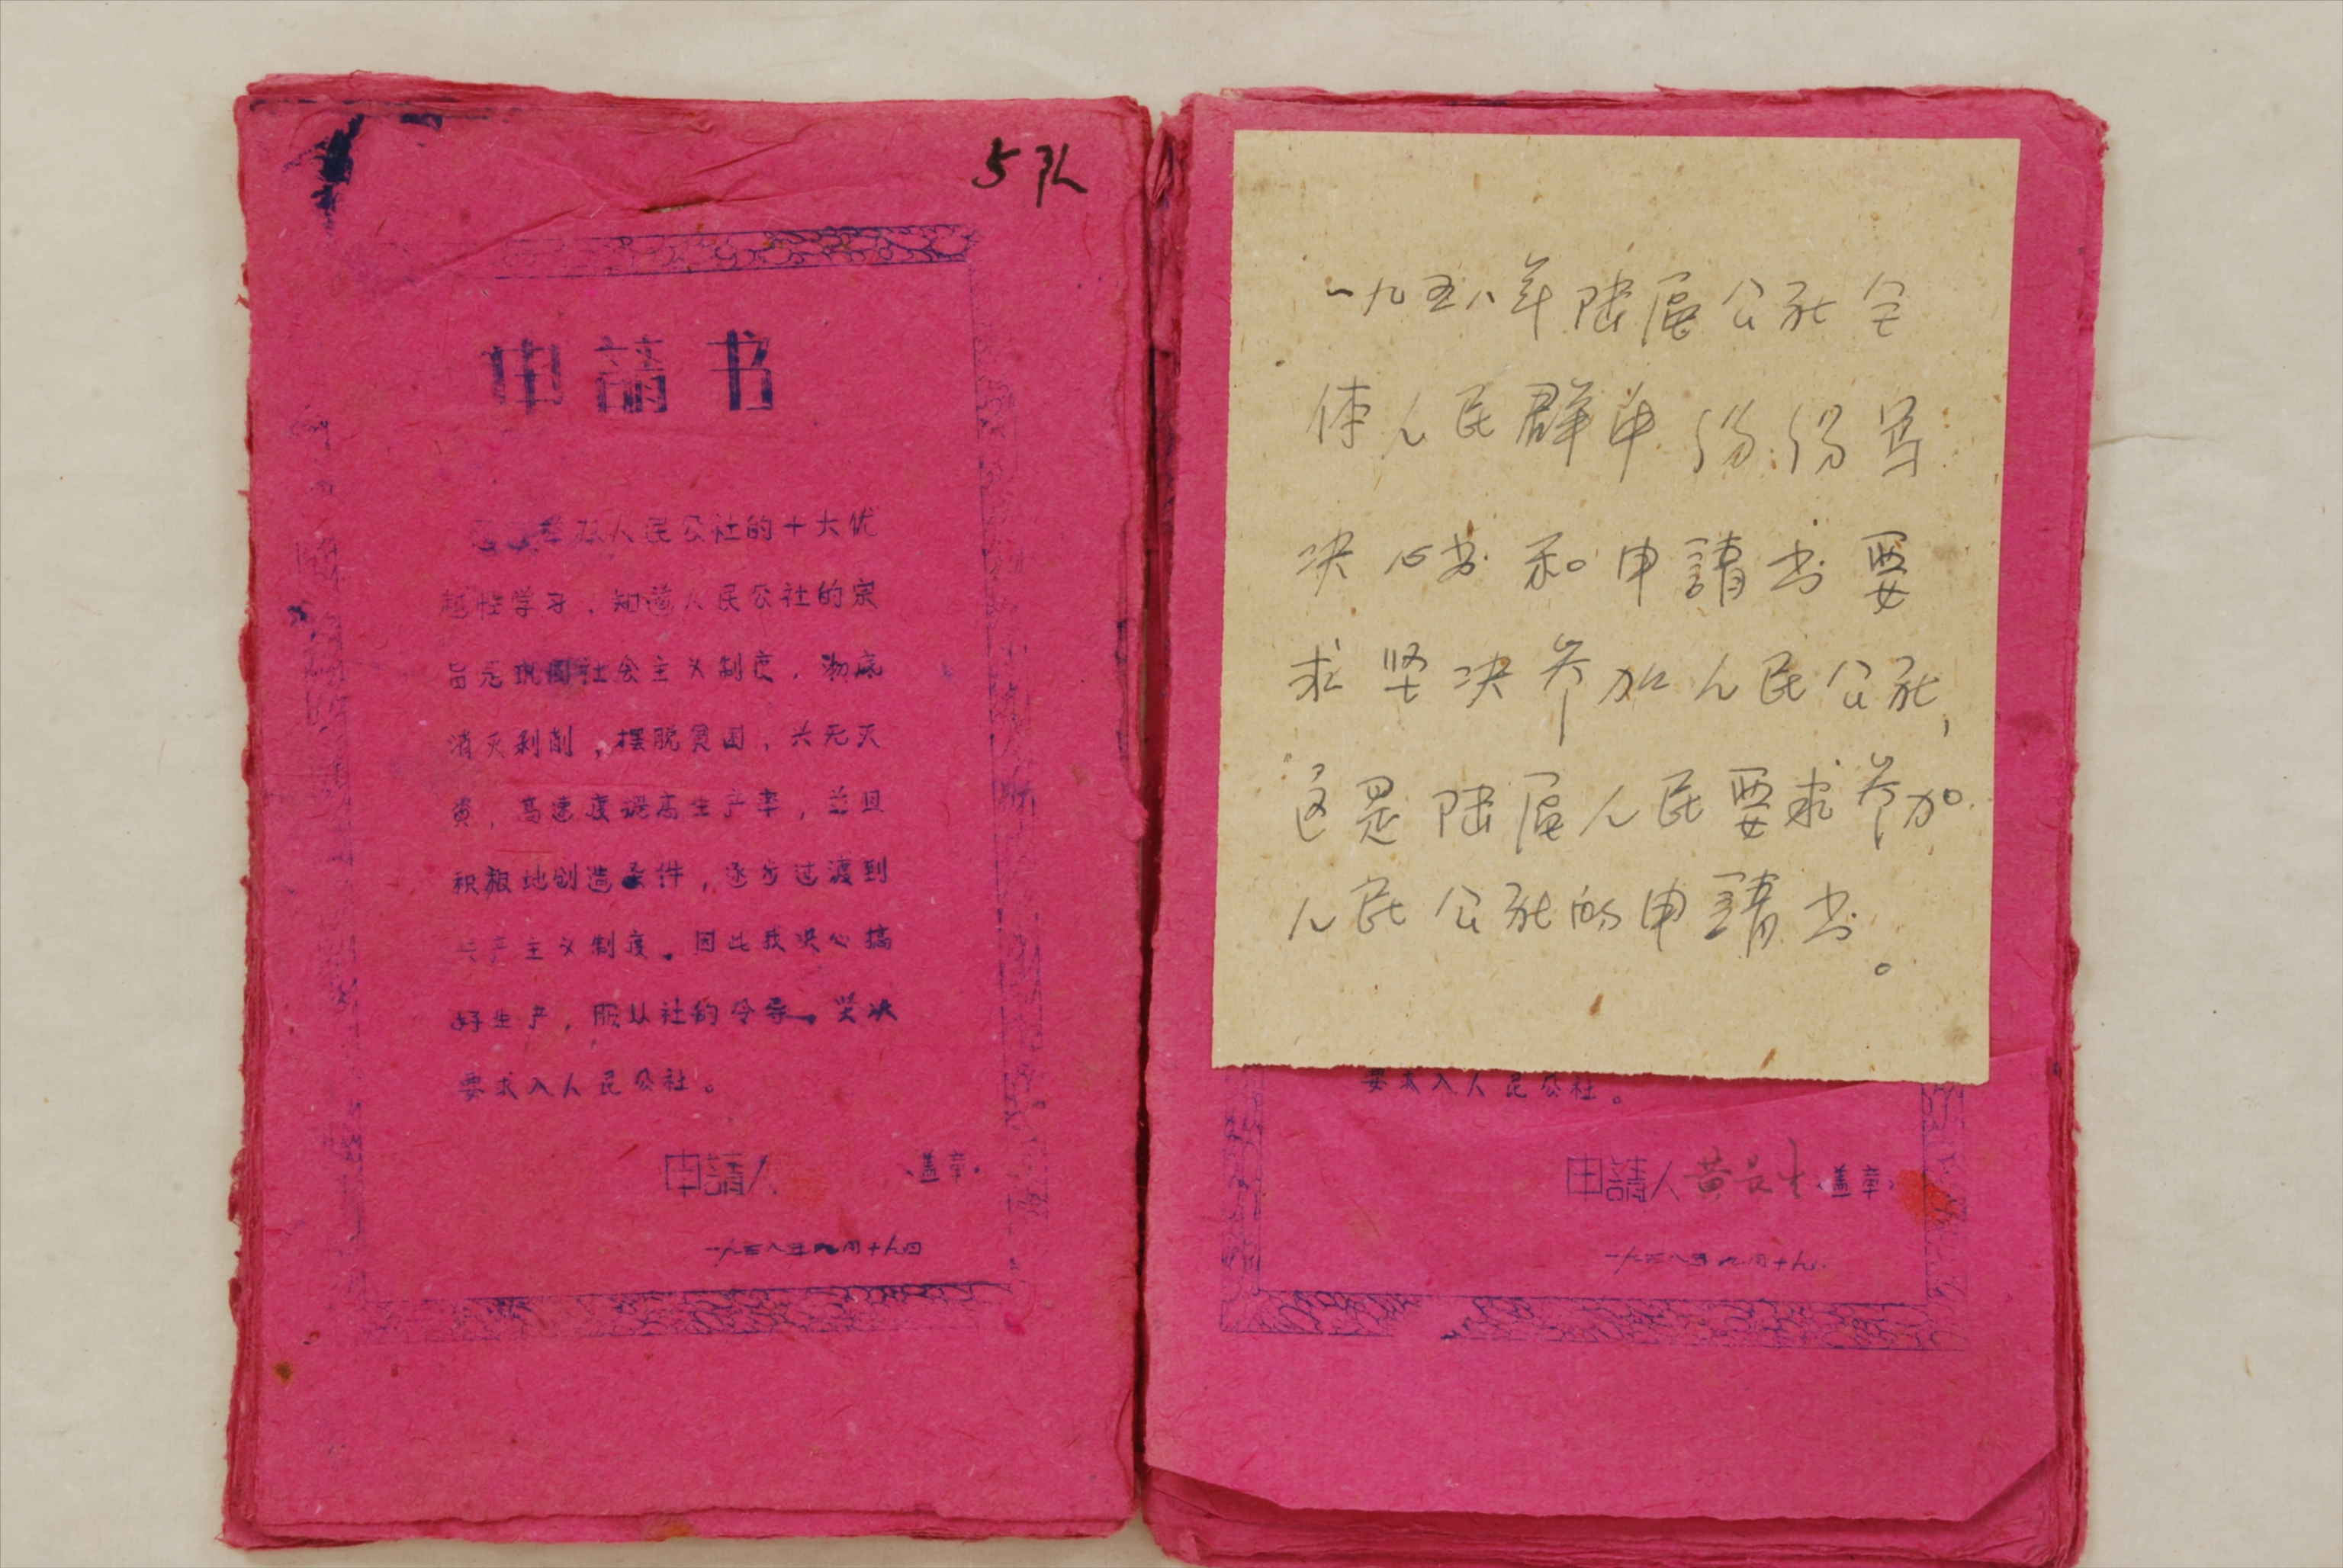 5队
申請书
人民公社的十大优
越性学习，知道人民公社的宗
旨是巩固社会主义制度，彻底
消灭剥削，摆脱贫困，兴无灭
資，高速度提高生产率，並且
积极地创造条件，逐步过渡到
共产主义制度。因此我决心搞
好生产，服从社的令导，坚决
要求入人民公社。
申請人 盖章
一九五八年九月十九日
一九五八年陆居公社全
体人民群中份份写
决心书和申請书要
求坚决参加人民公社，
这是陆居人民要求参加
人民公社的申請书。
要求入人民公社。
申請人黄長生盖章
一九五八年九月十九